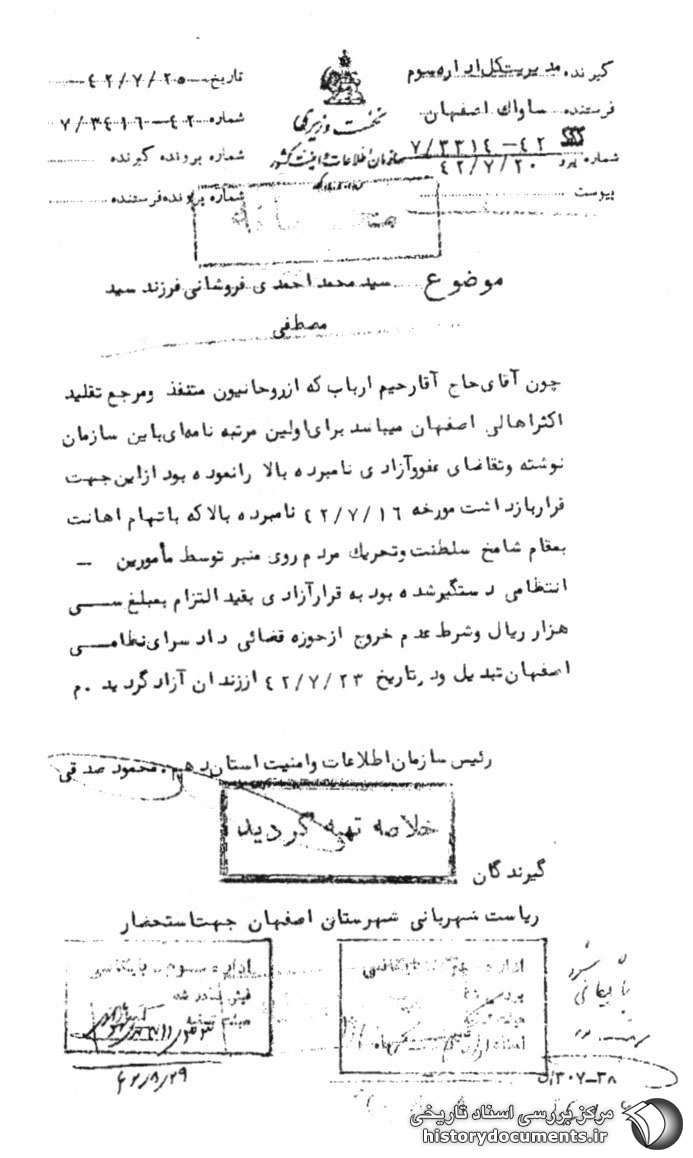 گیرنده مدیریت کل اداره سوم
فرستنده ساواك اصفهان
۷/۳۳۱۴ – ۴۲
شماره پیرو ۴۲/۷/۲۰
پیوست
نخست وزیری
سازمان اطلاعات و امنیت کشور
تاریخ ۴۲/۷/۲۵
شماره ۷/۳۴۱۶–۴۲
شماره پرونده گیرنده
شماره پرونده فرستنده
موضوع سید محمد احمدی فروشانی فرزند سید
مصطفی
چون آقای حاج آقا رحیم ارباب که از روحانیون متنفذ و مرجع تقلید
اکثر اهالی اصفهان میباشد برای اولین مرتبه نامه‌ای باین سازمان
نوشته و تقاضای عفو و آزادی نامبرده بالا را نموده بود از این جهت
قرار بازداشت مورخه ۴۲/۷/۱۶ نامبرده بالا که باتهام اهانت
بمقام شامخ سلطنت و تحریك مردم روی منبر توسط مأمورین –
انتظامی دستگیر شده بود به قرار آزادی بقید التزام بمبلغ سی
هزار ریال و شرط عدم خروج از حوزه قضائی دادسرای نظامی
اصفهان تبدیل و در تاریخ ۴۲/۷/۲۳ از زندان آزاد گردید .م
رئیس سازمان اطلاعات و امنیت استان دهم . محمود صدقی
خلاصه تهیه گردید
گیرندگان
ریاست شهربانی شهرستان اصفهان جهت استحضار
اداره سوم بایگانی
۴۲/۸/۲۹
بایگانی شود
۳۰۷–۳۸
مرکز بررسی اسناد تاریخی
historydocuments.ir